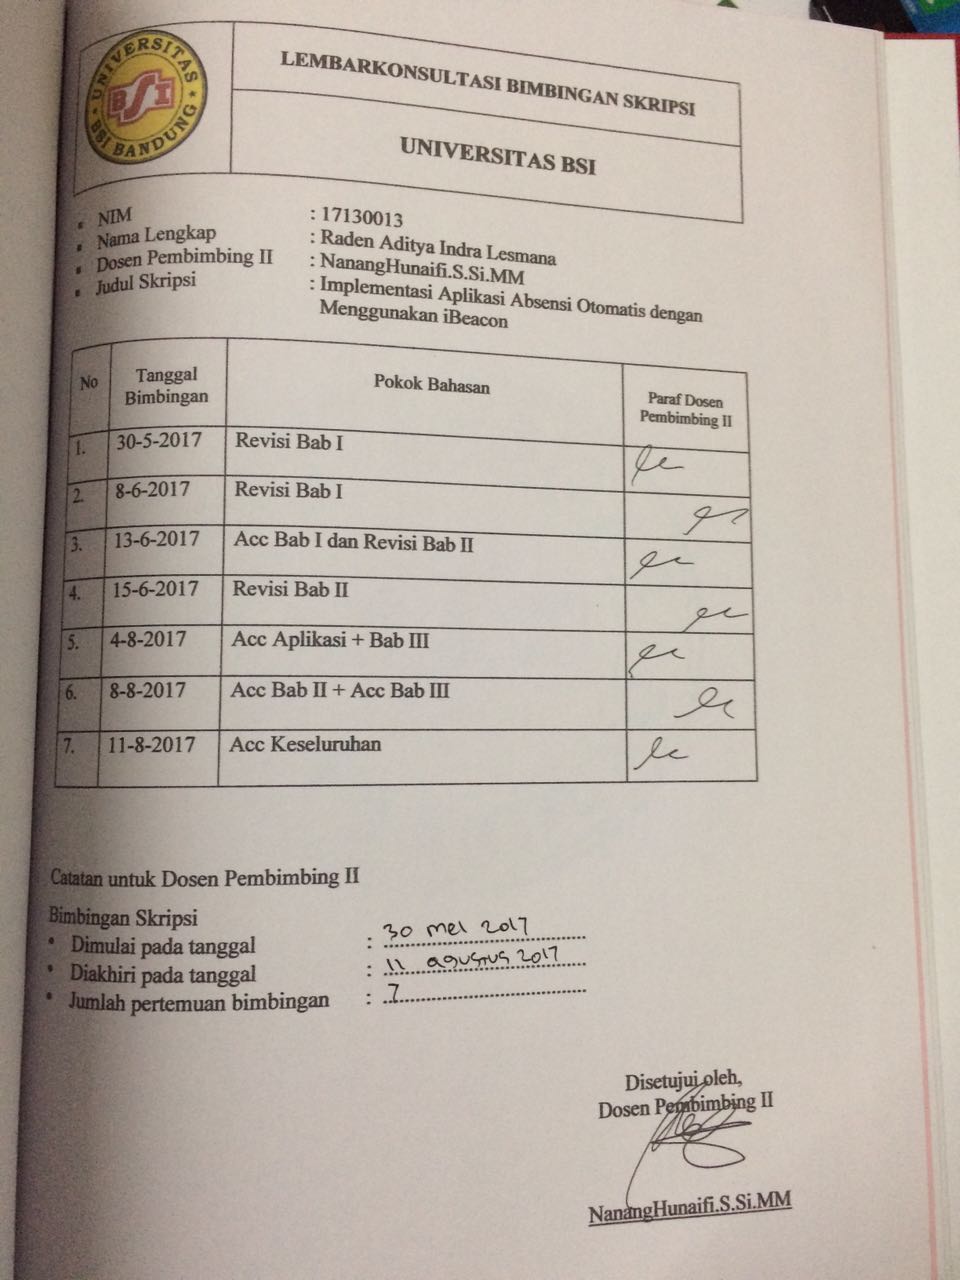 UNIVERSITAS
BSI
BSI BANDUNG
LEMBARKONSULTASI BIMBINGAN SKRIPSI
UNIVERSITAS BSI
NIM : 17130013
Nama Lengkap : Raden Aditya Indra Lesmana
Dosen Pembimbing II : NanangHunaifi.S.Si.MM
Judul Skripsi : Implementasi Aplikasi Absensi Otomatis dengan
Menggunakan iBeacon
No Tanggal Bimbingan Pokok Bahasan Paraf Dosen Pembimbing II
1. 30-5-2017 Revisi Bab I
2. 8-6-2017 Revisi Bab I
3. 13-6-2017 Acc Bab I dan Revisi Bab II
4. 15-6-2017 Revisi Bab II
5. 4-8-2017 Acc Aplikasi + Bab III
6. 8-8-2017 Acc Bab II + Acc Bab III
7. 11-8-2017 Acc Keseluruhan
Catatan untuk Dosen Pembimbing II
Bimbingan Skripsi
• Dimulai pada tanggal : 30 mei 2017
• Diakhiri pada tanggal : 11 agustus 2017
• Jumlah pertemuan bimbingan : 7
Disetujui oleh,
Dosen Pembimbing II
NanangHunaifi.S.Si.MM